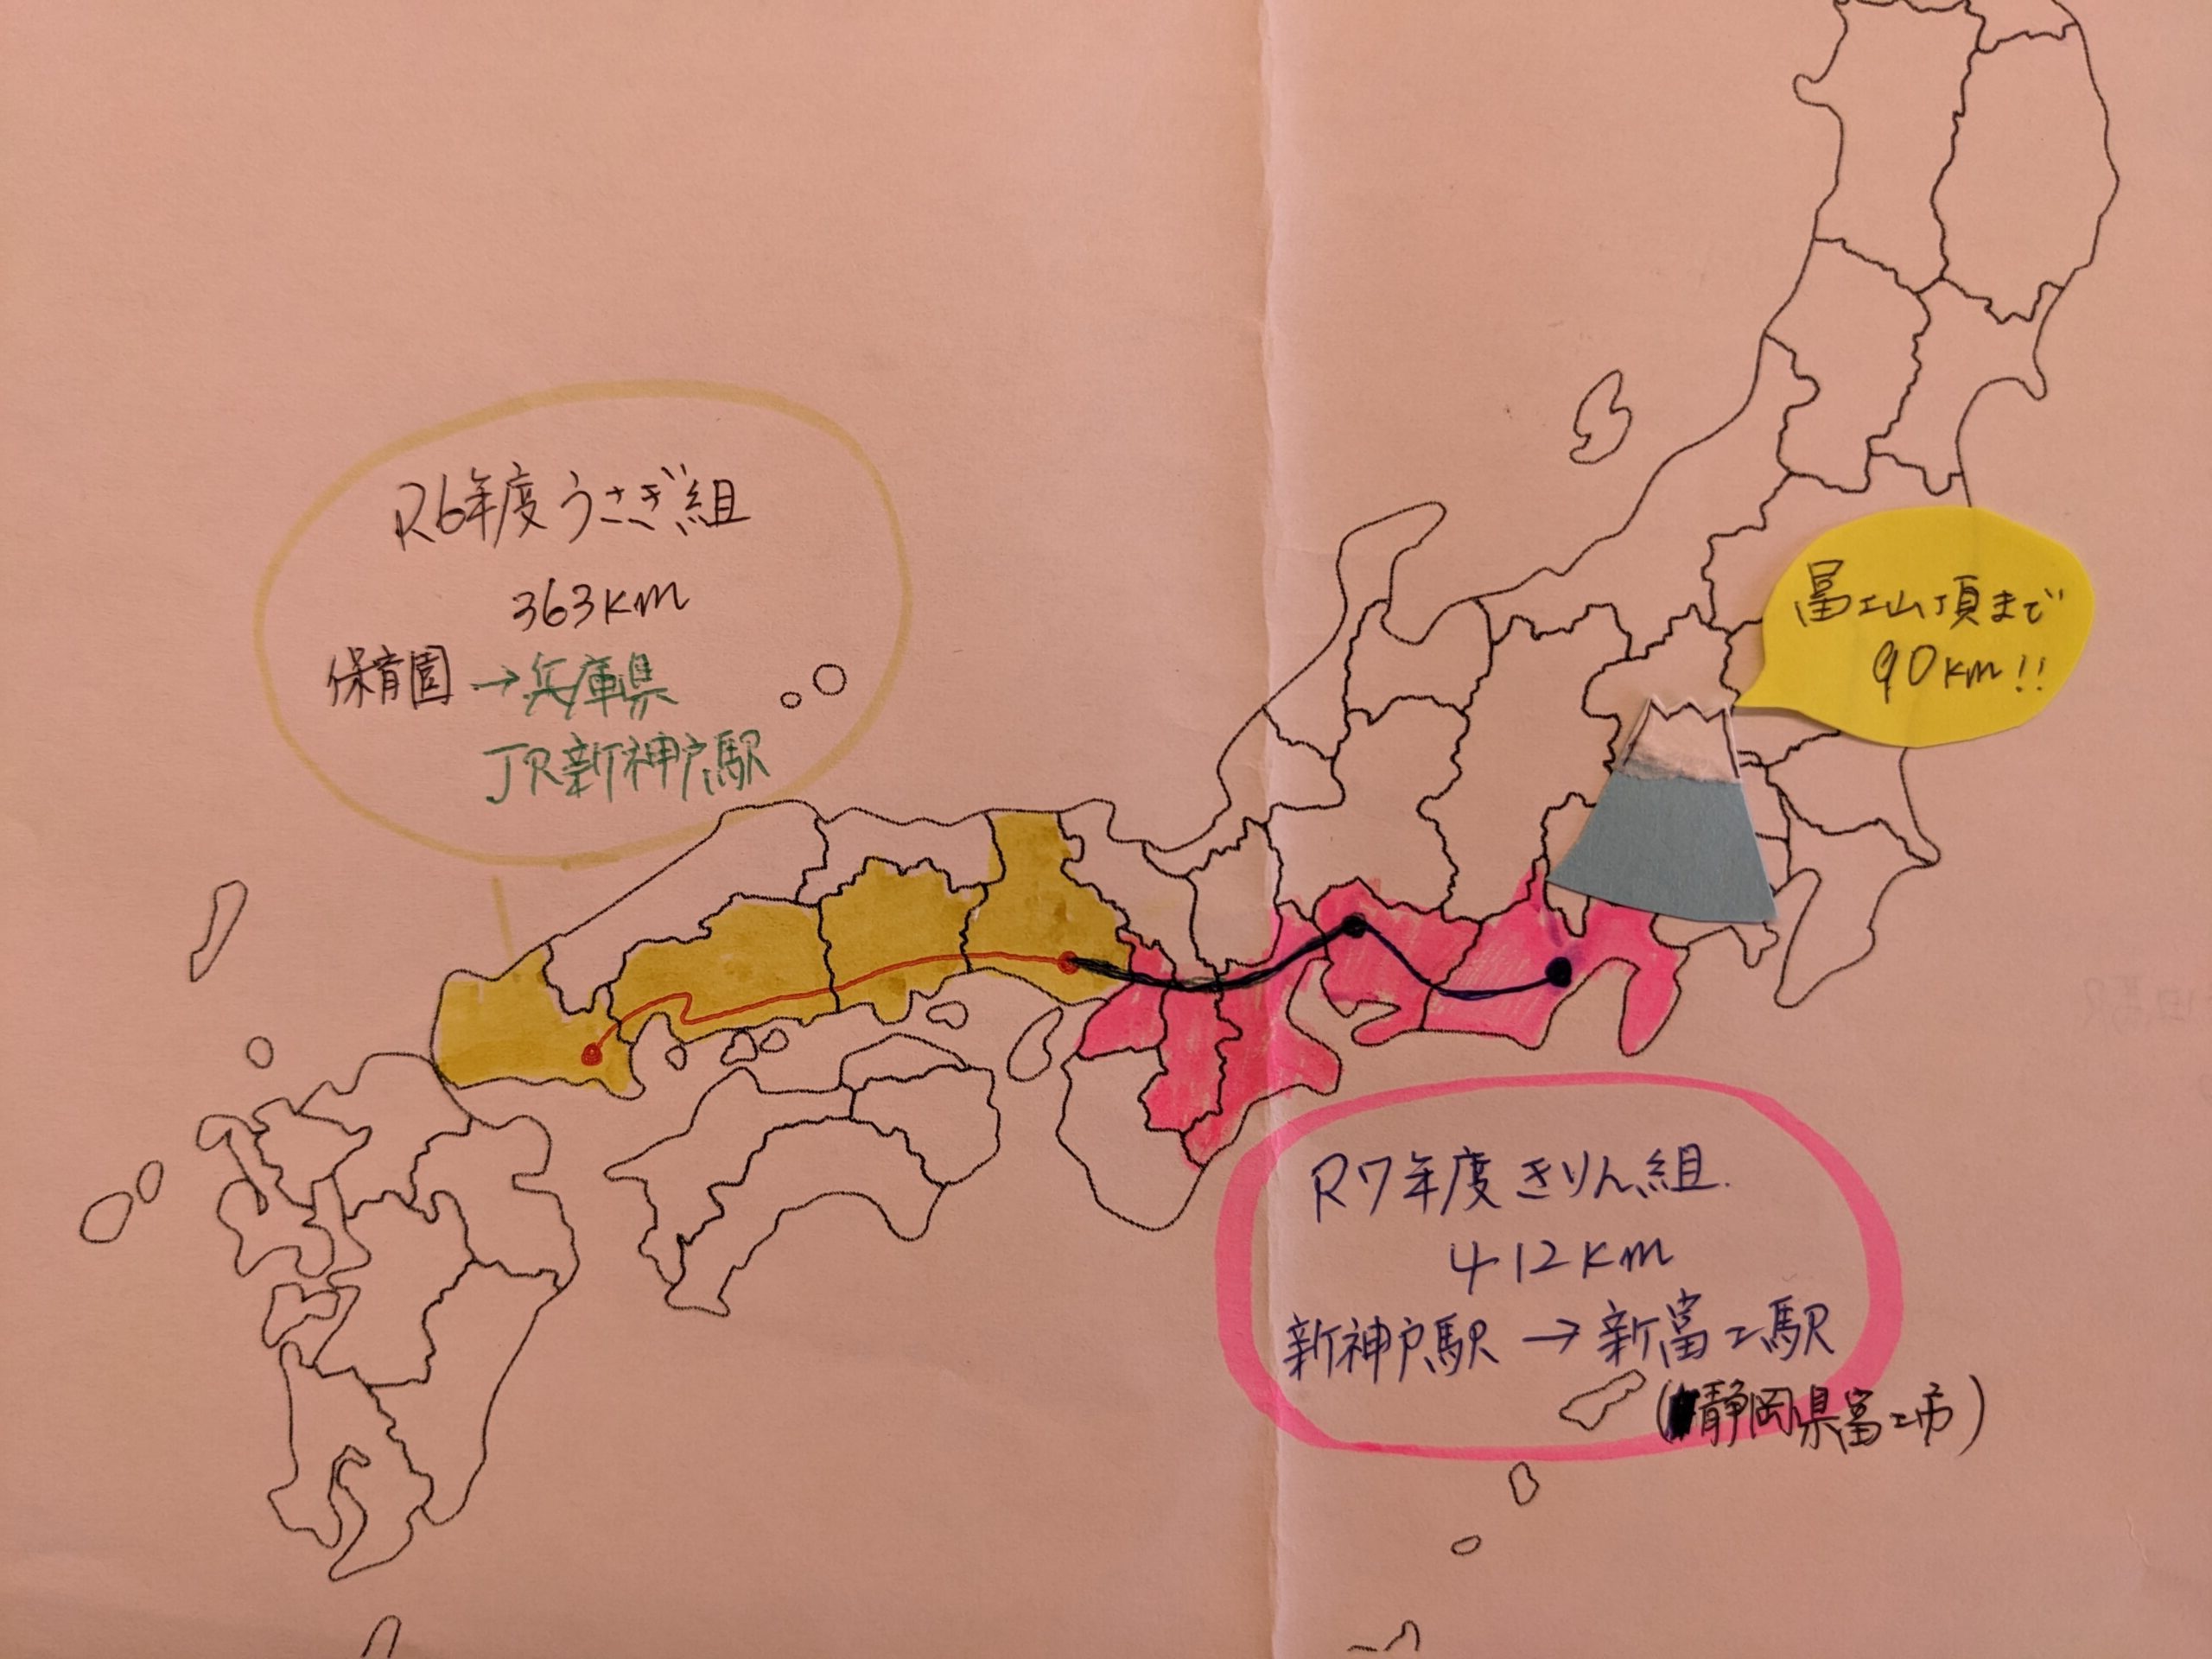 R6年度うさぎ組
363km
保育園→兵庫県
JR新神戸駅
富士山頂まで
90km!!
R7年度きりん組.
412km
新神戸駅→新富士駅
(静岡県富士市)